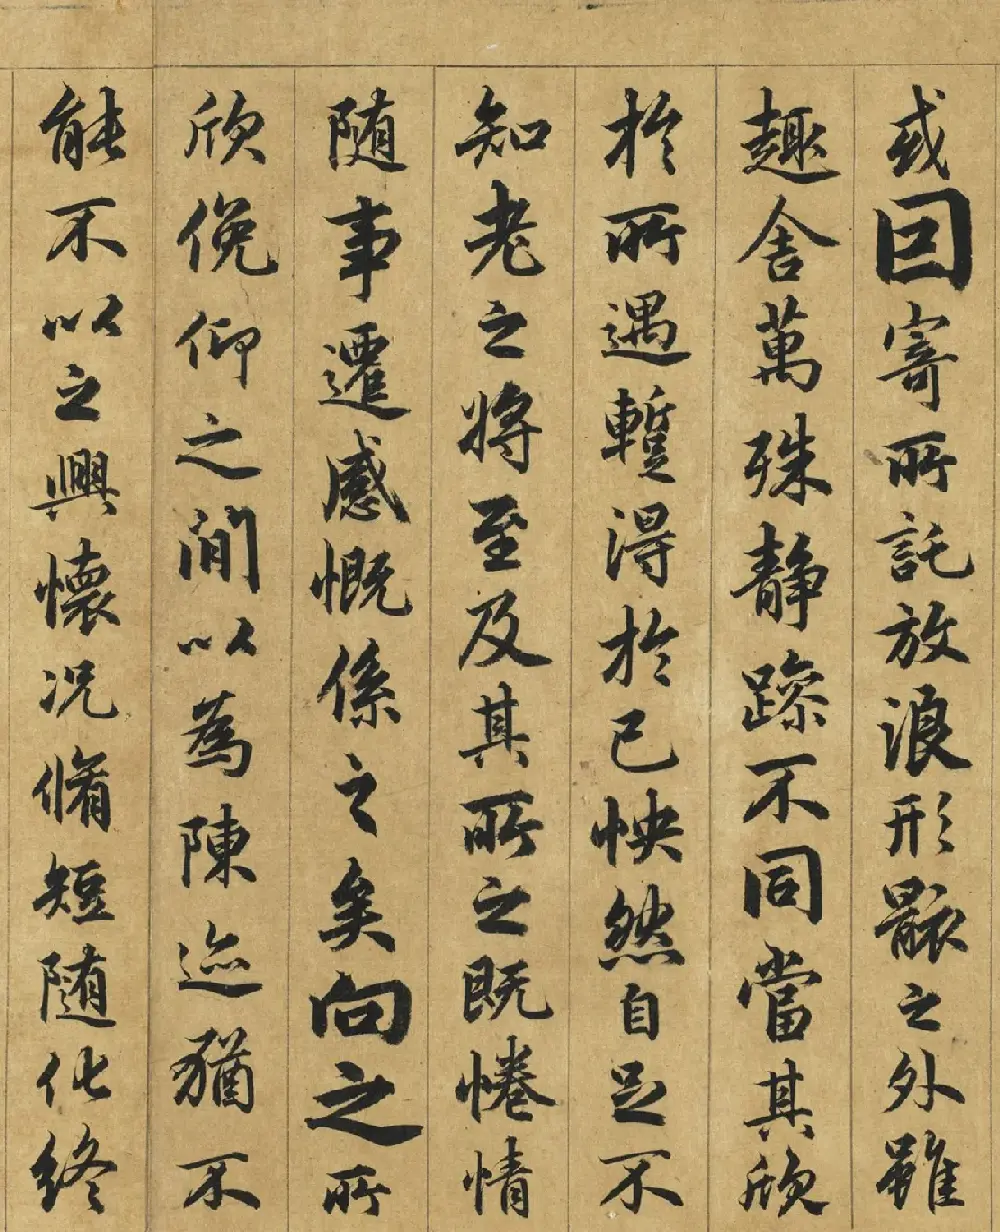 或因寄所託放浪形骸之外雖
趣舍萬殊静躁不同當其欣
於所遇蹔得於己怏然自足不
知老之將至及其所之既惓情
随事遷感慨係之矣向之所
欣俛仰之間以為陳迹猶不
能不以之興懷况脩短随化終